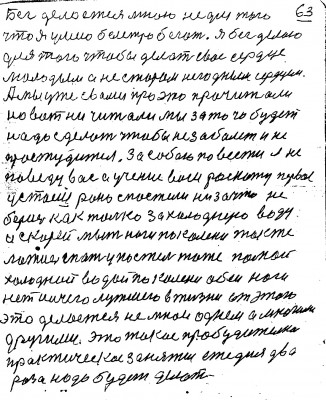 63
Бег делается мною не для того
что я умею быстро бегат. Я бег делаю
для того чтобы делат свое сердце
молодым а не старом негодным сердцем.
А мы уже с вами про это прочитали
но вот ни читали мы за то чо будет
надо сделат чтобы не заболет и не
простудится. За собою повести я не
поведу вас а учение вам раскожу первое
и стоящ рано с постели ни за што не
берис как толко за холодную воду
и скорей мыт ноги по колени также
ложис спат и после тоже помой
холодной водой по колени обеи ноги
нет ничего лутшего в жизни от этого
это делается не мной одним а многими
другими. Это такое пробудително
практическое занятия ежедня два
раза надо будет делат